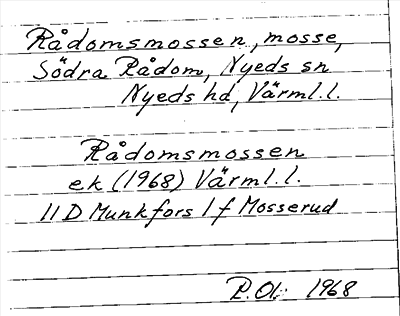 Rådomsmossen, mosse,
Södra Rådom, Nyeds sn
Nyeds hd, Värml. l.
Rådomsmossen
ek (1968) Värml. l.
11 D Munkfors 1 f Mosserud
P.Ol. 1968